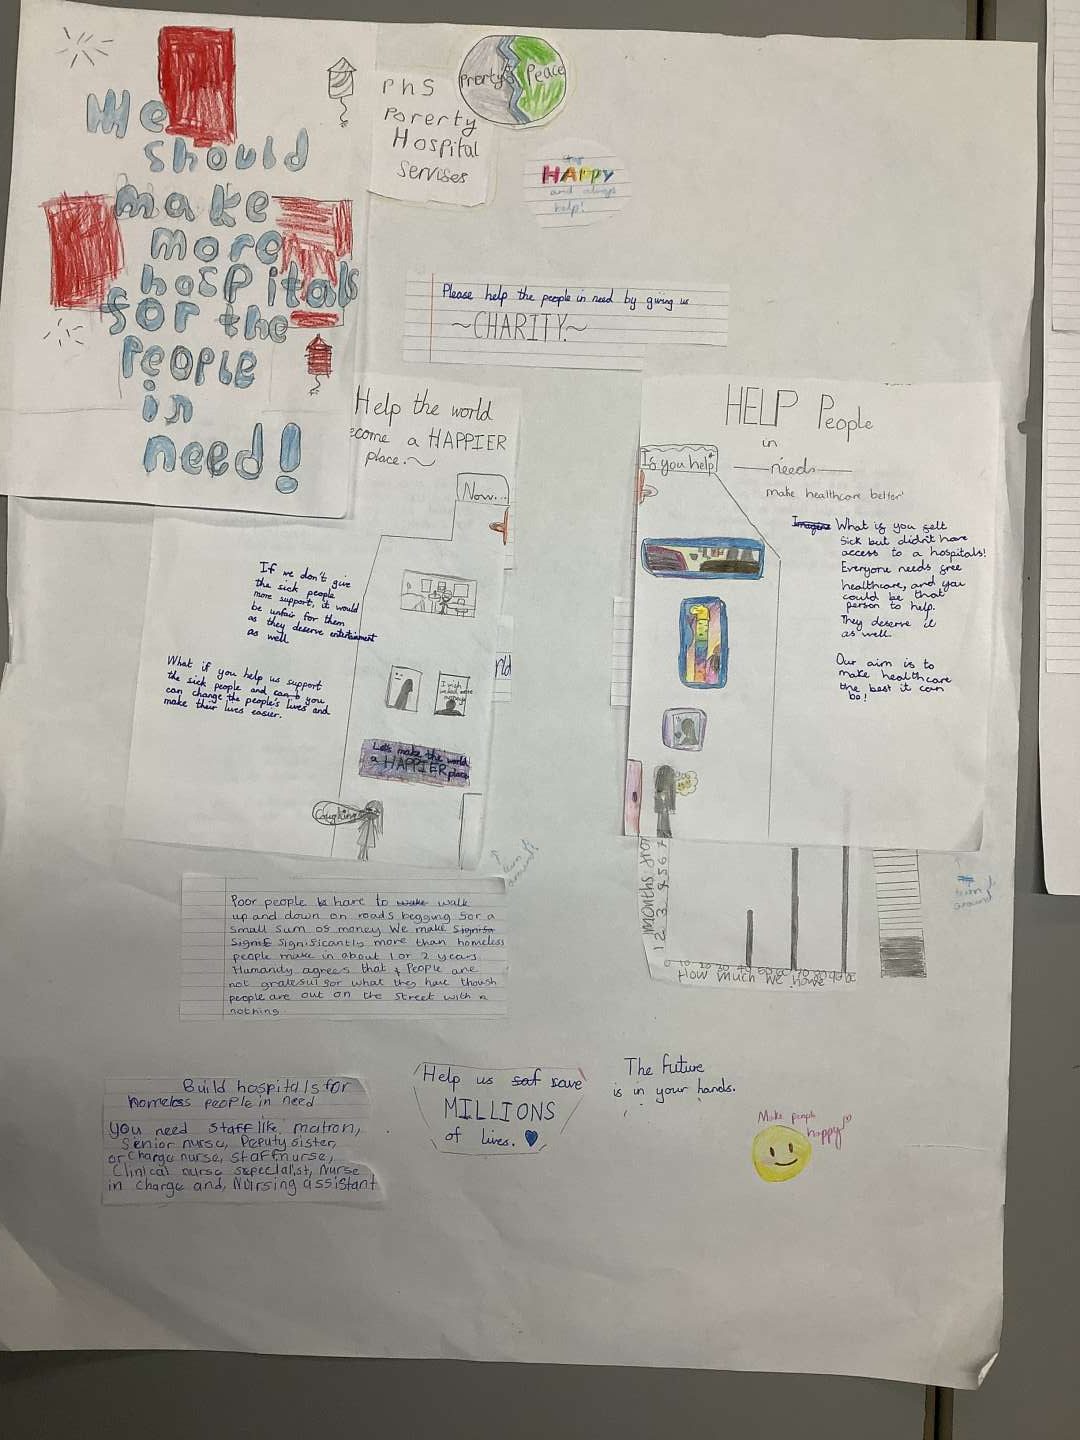 We
should
make
more
hospitals
for the
PEOPLE
in
need!
PHS
Poverty
Hospital
Servises
Peace
HAPPY
and always
help!
Please help the people in need by giving us
~CHARITY.~
Help the world
ecome a HAPPIER
place.~
Now...
If we don't give
the sick people
more support, it would
be unfair for them
as they deserve entertainment
as well
What if you help us support
the sick people and you
can change the people's lives and
make their lives easier.
I wish
Let's make the world
a HAPPIER place
Coughing
turn
around!
HELP People
in
needs
make healthcare better!
If you help
Imagine What if you felt
sick but didn't have
access to a hospitals!
Everyone needs free
healthcare, and you
could be that
person to help.
They deserve it
as well.
Our aim is to
make healthcare
the best it can
be!
Months
1 2 3 4 5 6 7
How much we have
turn
around!
Poor people have to walk
up and down on roads begging for a
small sum of money. We make
Significantly more than homeless
people make in about 1 or 2 years.
Humandy agrees that People are
not grateful for what they have though
people are out on the street with
nothing.
Build hospitals for
homeless people in need
you need staff like, matron,
Senior nurse, Deputy sister,
or Charge nurse, staff nurse,
Clinical nurse specialist, Nurse
in charge and, Nursing assistant
Help us saf save
MILLIONS
of lives.
The future
is in your hands.
Make people
happy!